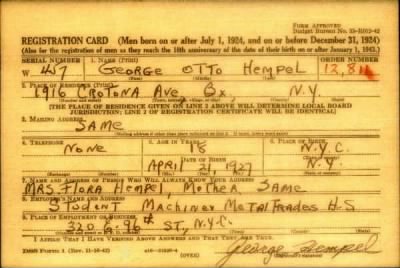 FORM APPROVED
REGISTRATION CARD (Men born on or after July 1, 1924, and on or before December 31, 1924)
(Also for the registration of men as they reach the 18th anniversary of the date of their birth on or after January 1, 1943.)
SERIAL NUMBER 1. NAME (Print) ORDER NUMBER
W 457 GEORGE OTTO HEMPEL 12,811
2. PLACE OF RESIDENCE (Print)
1916 CROTONA AVE Bx, N.Y.
[THE PLACE OF RESIDENCE GIVEN ON LINE 2 ABOVE WILL DETERMINE LOCAL BOARD
JURISDICTION; LINE 2 OF REGISTRATION CERTIFICATE WILL BE IDENTICAL]
3. MAILING ADDRESS
SAME
4. TELEPHONE 5. AGE IN YEARS 6. PLACE OF BIRTH
NONE 18 N.Y.C.
DATE OF BIRTH
APRIL 21 1927 N.Y.
7. NAME AND ADDRESS OF PERSON WHO WILL ALWAYS KNOW YOUR ADDRESS
MRS FLORA HEMPEL, MOTHER SAME
8. EMPLOYER'S NAME AND ADDRESS
STUDENT MACHINE METAL TRADES H.S
9. PLACE OF EMPLOYMENT OR BUSINESS
320 E. 96th ST, N.Y.C.
I AFFIRM THAT I HAVE VERIFIED ABOVE ANSWERS AND THAT THEY ARE TRUE.
DSS Form 1
George Hempel